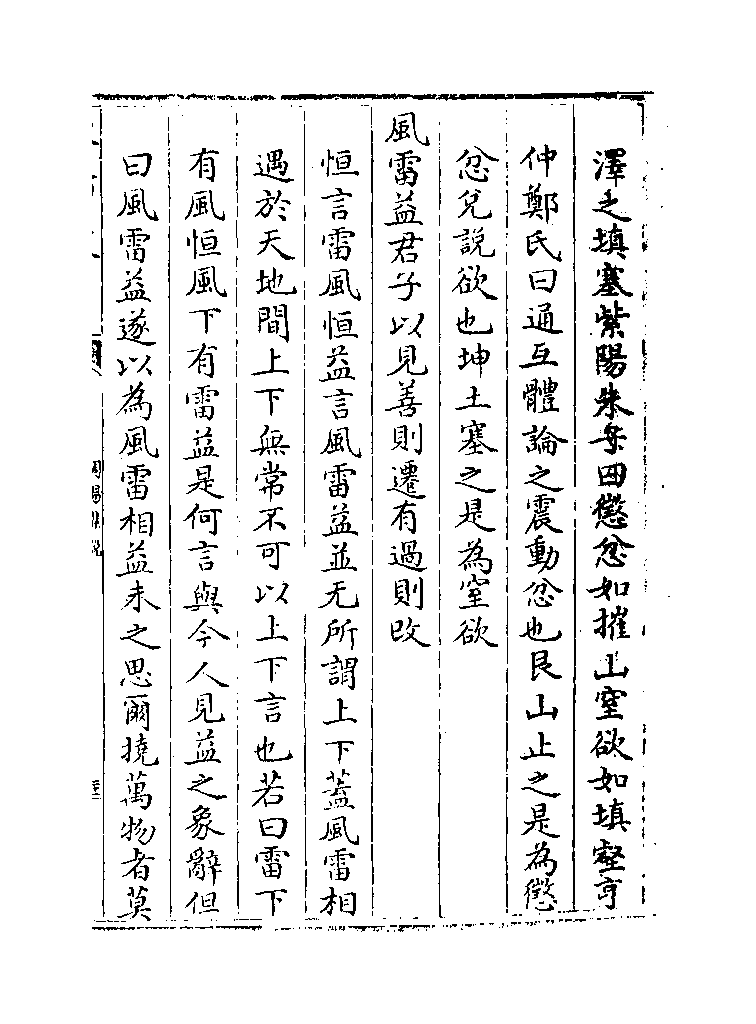 澤之填塞紫陽朱子曰懲忿如摧山窒欲如填壑亨
仲鄭氏曰通互體論之震動忿也艮山止之是為懲
忿兌說欲也坤土塞之是為窒欲
風雷益君子以見善則遷有過則改
恒言雷風恒益言風雷益並无所謂上下蓋風雷相
遇於天地間上下無常不可以上下言也若曰雷下
有風恒風下有雷益是何言與今人見益之象辭但
曰風雷益遂以為風雷相益未之思爾撓萬物者莫